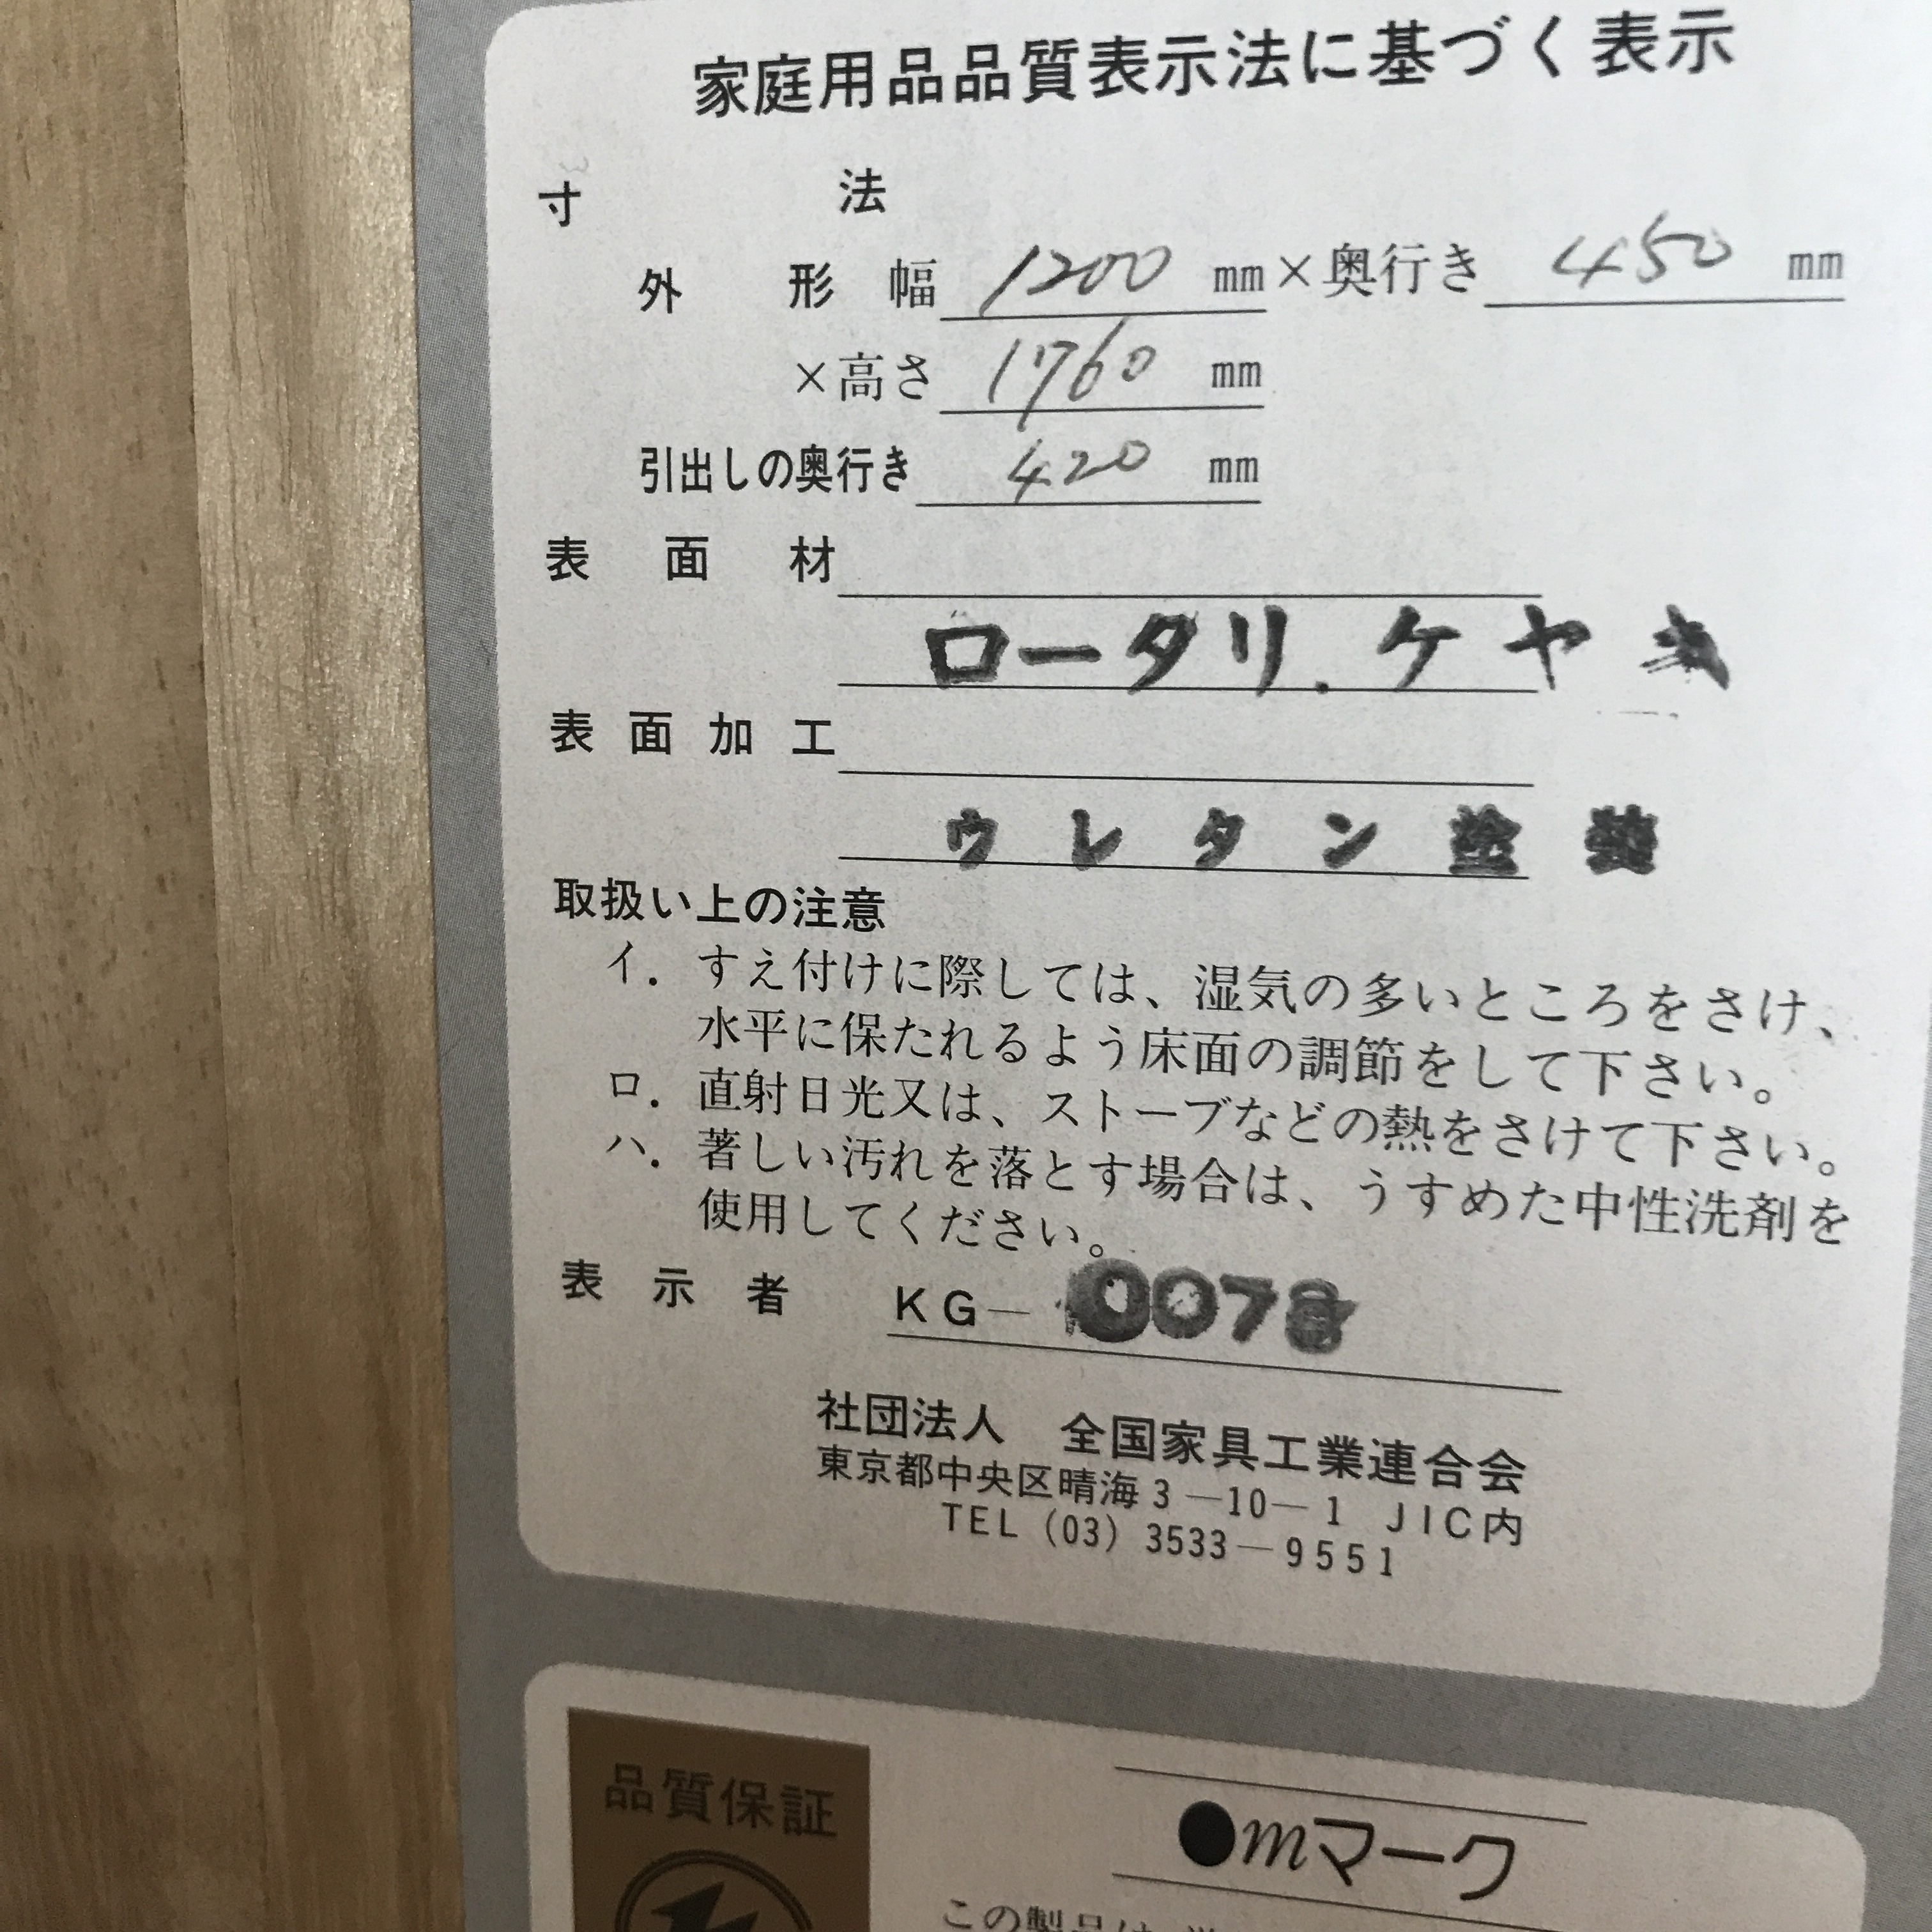 家庭用品品質表示法に基づく表示
寸 法
外 形 幅 1200 mm×奥行き 450 mm
×高さ 1760 mm
引出しの奥行き 420 mm
表 面 材
ロータリ.ケヤキ
表 面 加 工
ウレタン塗装
取扱い上の注意
イ. すえ付けに際しては、湿気の多いところをさけ、
水平に保たれるよう床面の調節をして下さい。
ロ. 直射日光又は、ストーブなどの熱をさけて下さい。
ハ. 著しい汚れを落とす場合は、うすめた中性洗剤を
使用してください。
表 示 者 KG— 0078
社団法人 全国家具工業連合会
東京都中央区晴海3—10—1 JIC内
TEL (03) 3533—9551
品質保証
●mマーク
この製品は